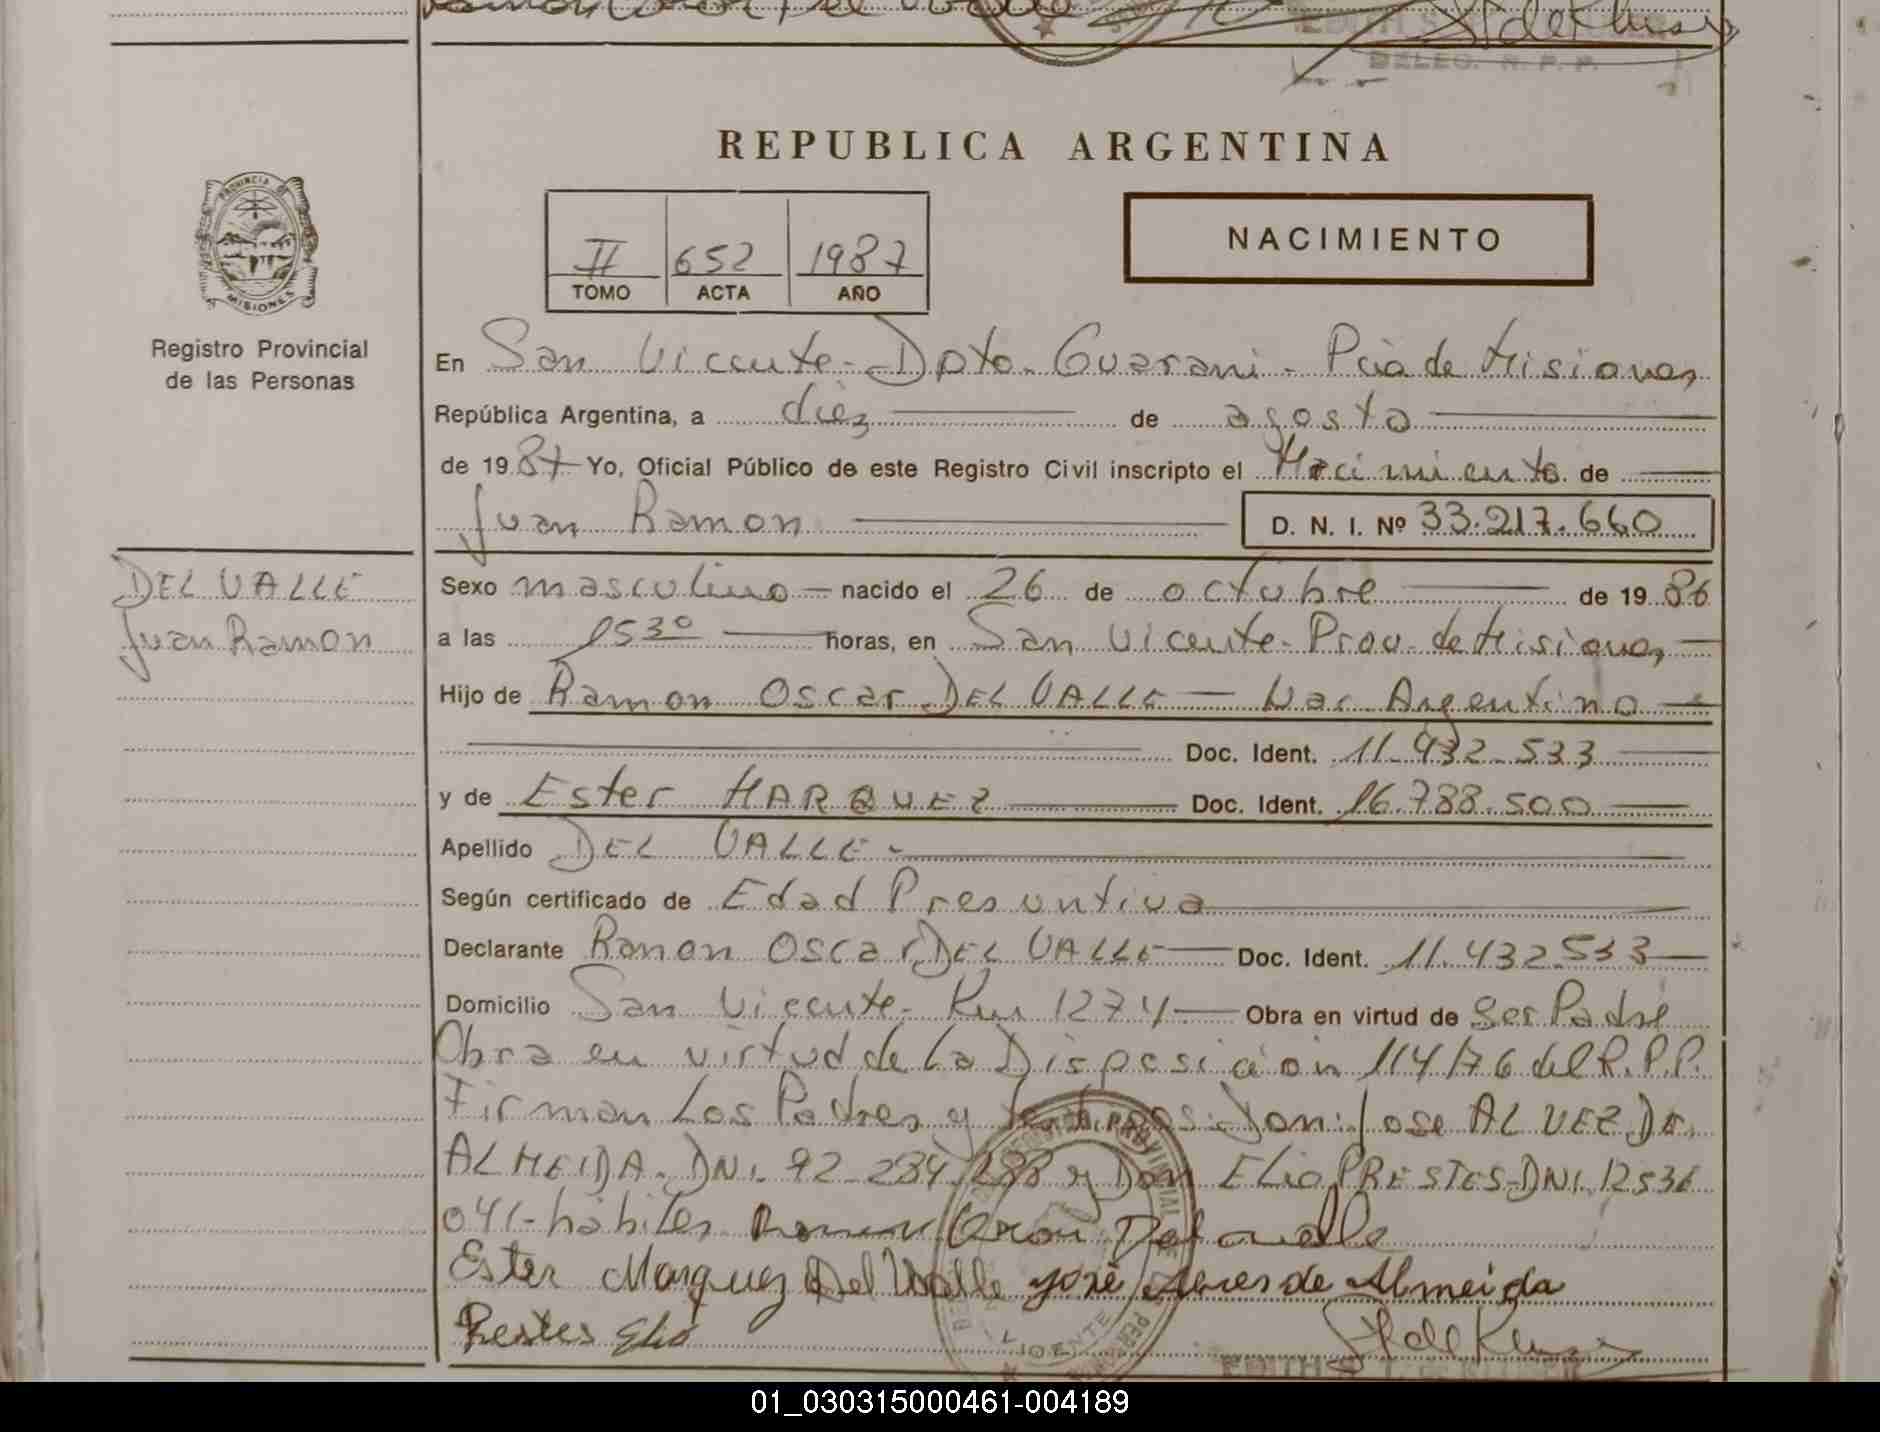 DELEG. R. P. P.
REPUBLICA ARGENTINA
PROVINCIA DE
MISIONES
Registro Provincial
de las Personas
II 652 1987
TOMO ACTA AÑO
NACIMIENTO
En San Vicente - Dpto. Guarani - Pcia de Misiones
República Argentina, a diez de agosto
de 1987 Yo, Oficial Público de este Registro Civil inscripto el Nacimiento de
Juan Ramon D. N. I. Nº 33.217.660
DEL VALLE
Juan Ramon
Sexo masculino nacido el 26 de octubre de 1986
a las 15 30 horas, en San Vicente - Prov. de Misiones
Hijo de Ramon Oscar DEL VALLE - Nac Argentino
Doc. Ident. 11.432.533
y de Ester MARQUEZ Doc. Ident. 16.788.500
Apellido DEL VALLE -
Según certificado de Edad Presuntiva
Declarante Ramon Oscar DEL VALLE Doc. Ident. 11.432.533
Domicilio San Vicente - Km 1274 Obra en virtud de Ser Padre
Obra en virtud de la Disposición 114/76 del R.P.P.
Firman Los Padres y testigos: Don: Jose ALVEZ DE
ALMEIDA - DNI. 92.284.288 y Don ELio PRESTES - DNI. 12536
041 - hábiles Ramon Oscar Del valle
Ester Marquez Del Valle José Alves de Almeida
Prestes Elio
01_030315000461-004189